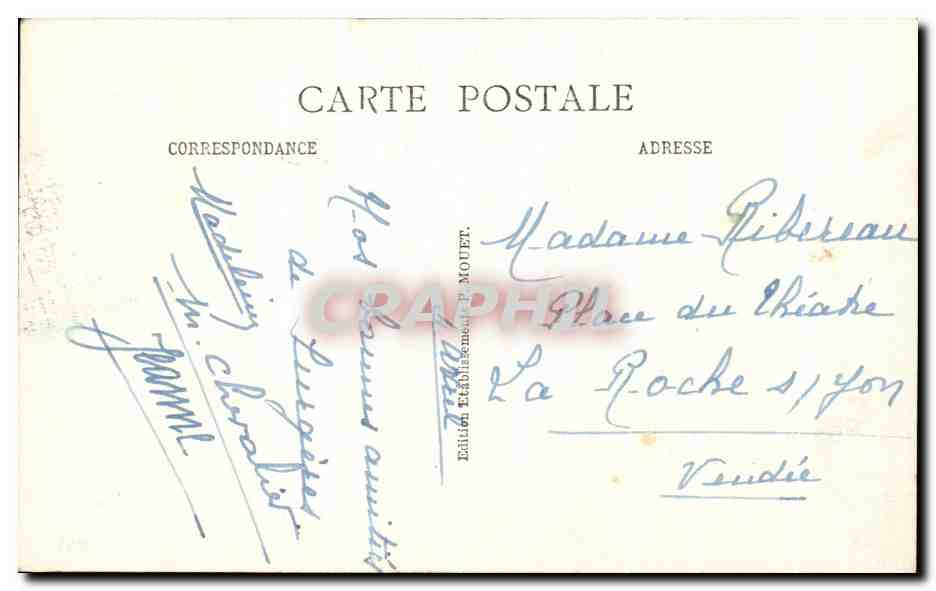 CARTE POSTALE
CORRESPONDANCE
ADRESSE
Nos bonnes amitiés
de Surgères
Madeleine
M. Chevalier
Jeanne
Edition Etablissements P. MOUET.
Madame Ribereau
Place du théatre
La Roche s/Yon
Vendée
CRAPHI